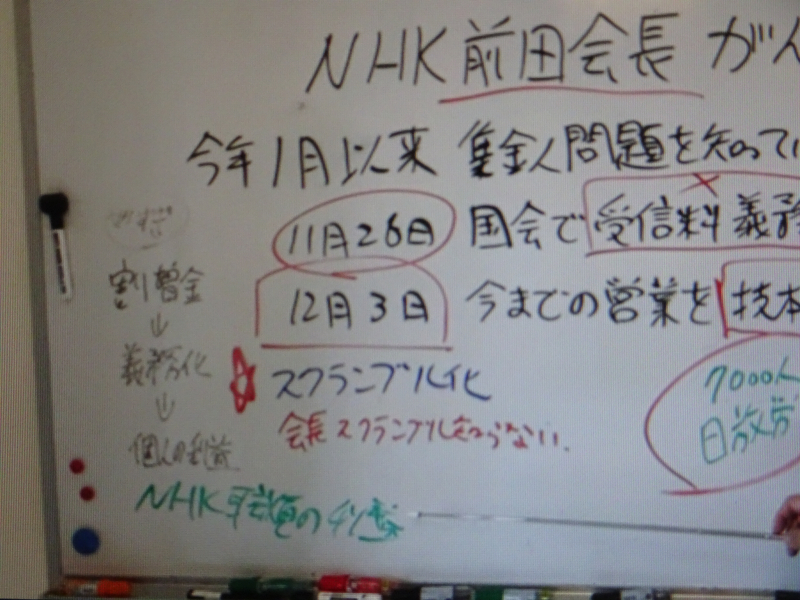 NHK前田会長が
今年1月以来 集金人問題を知ってい
11月26日 国会で受信料義務
12月3日 今までの営業を抜本
割増金
↓
義務化
↓
個人の利益
スクランブル化
会長スクランブル知らない.
7000人
日放労
NHK職員の